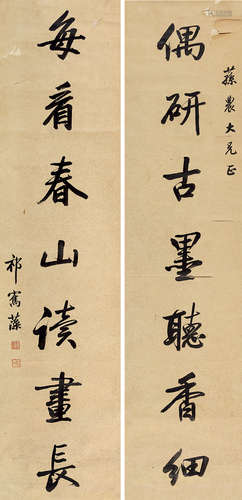 蓀農大兄正
偶研古墨聽香細
每看春山读畫長
祁寯藻